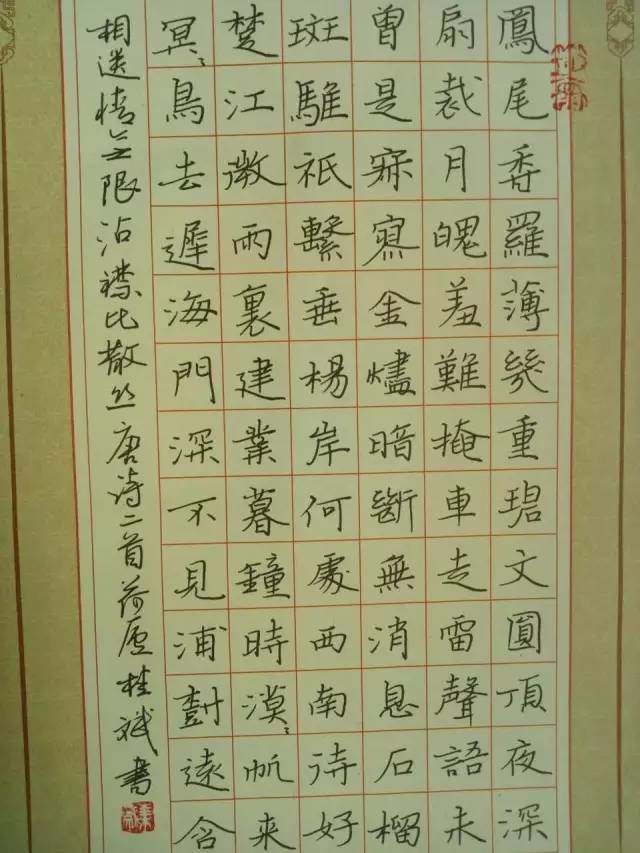 鳳尾香羅薄幾重碧文圓頂夜深
扇裁月魄羞難掩車走雷聲語未
曾是寂寥金燼暗斷無消息石榴
斑騅祇繫垂楊岸何處西南待好
楚江微雨裏建業暮鐘時漠〻帆来
冥〻鳥去遲海門深不見浦樹遠含
相送情无限沾襟比散丝唐诗二首荷庐桂斌書